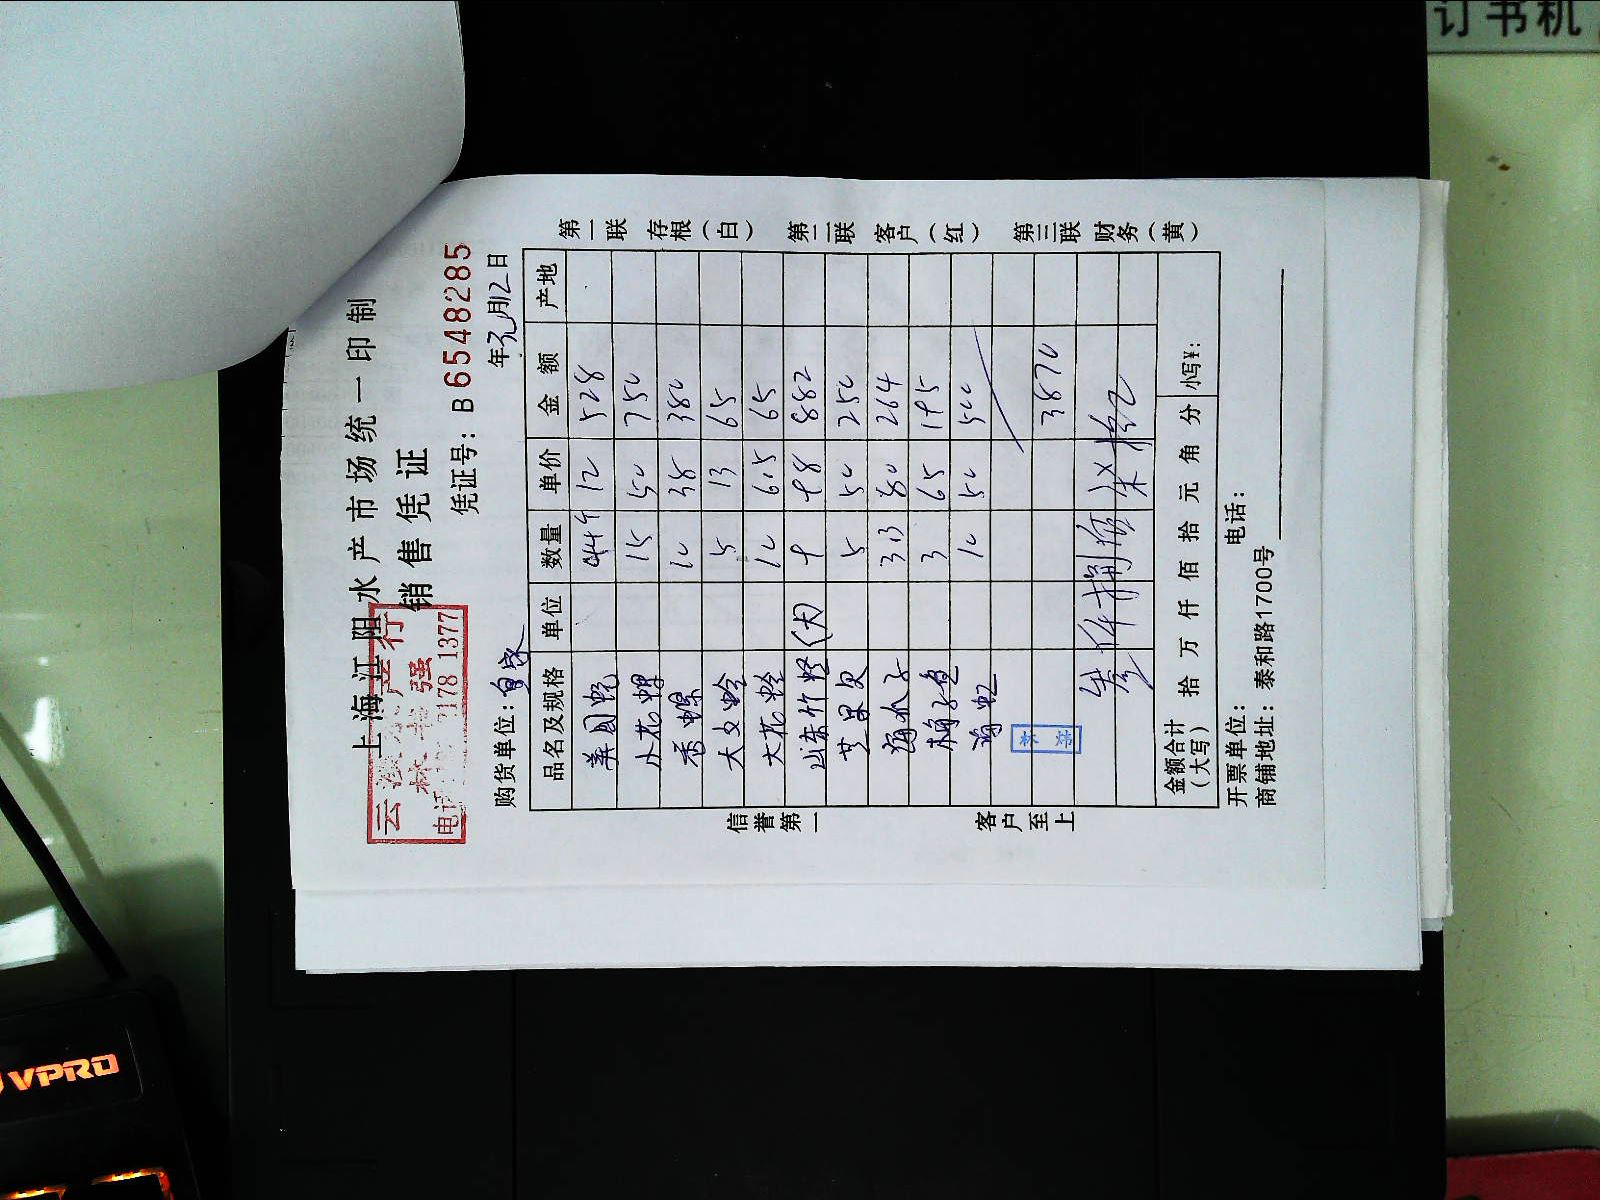 订书机
上海江阳水产市场统一印制
销售凭证
凭证号：B 6548285
购货单位： 年元月12日
品名及规格 单位 数量 单价 金额 产地
美国蚬 44斤 12 528
小花螺 15 50 750
香螺 10 38 380
大文蛤 5 13 65
大花蛤 10 6.5 65
山东竹蛏（大） 9 98 882
芝果贝 5 50 250
海瓜子 3.3 80 264
梅子鱼 3 65 195
海虹 10 50 500
3870
金额合计（大写） 拾 万 仟 佰 拾 元 角 分 小写￥：
开票单位： 电话：
商铺地址：泰和路1700号
第一联 存根（白） 第二联 客户（红） 第三联 财务（黄）
信誉第一 客户至上
VPRO